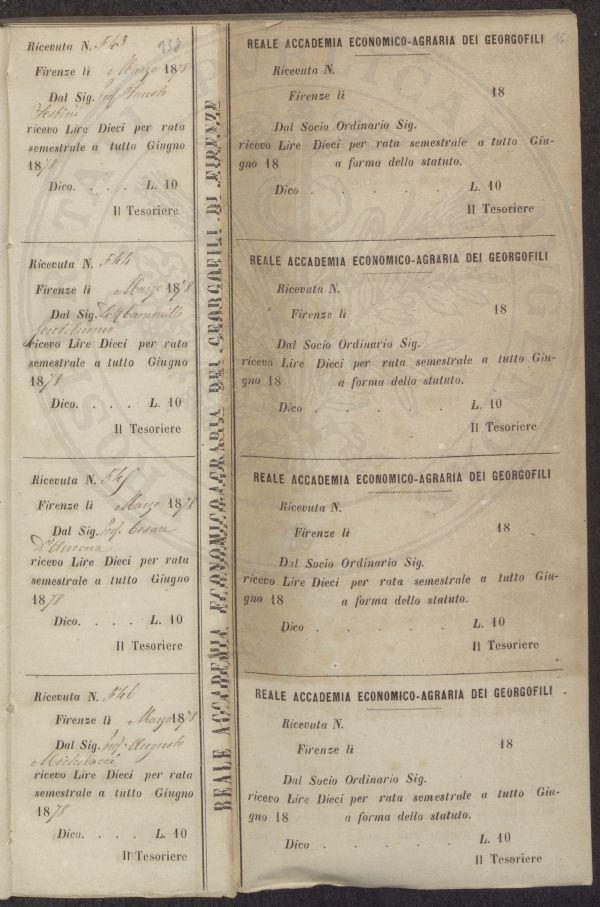 138
Ricevuta N. 543
Firenze lì Marzo 1878
Dal Sig. Prof. Fausto
Sestini
ricevo Lire Dieci per rata
semestrale a tutto Giugno
1878
Dico. . . . L. 10
Il Tesoriere
Ricevuta N. 544
Firenze lì Marzo 1878
Dal Sig.
ricevo Lire Dieci per rata
semestrale a tutto Giugno
1878
Dico. . . . L. 10
Il Tesoriere
Ricevuta N. 545
Firenze lì Marzo 1878
Dal Sig. Prof. Cesare
D'Ancona
ricevo Lire Dieci per rata
semestrale a tutto Giugno
1878
Dico. . . . L. 10
Il Tesoriere
Ricevuta N. 546
Firenze lì Marzo 1878
Dal Sig. Prof. Augusto
Michelacci
ricevo Lire Dieci per rata
semestrale a tutto Giugno
1878
Dico. . . . L. 10
Il Tesoriere
REALE ACCADEMIA ECONOMICO-AGRARIA DEI GEORGOFILI DI FIRENZE
16
REALE ACCADEMIA ECONOMICO-AGRARIA DEI GEORGOFILI
Ricevuta N.
Firenze lì 18
Dal Socio Ordinario Sig.
ricevo Lire Dieci per rata semestrale a tutto Giu-
gno 18 a forma dello statuto.
Dico . . . . . L. 10
Il Tesoriere
REALE ACCADEMIA ECONOMICO-AGRARIA DEI GEORGOFILI
Ricevuta N.
Firenze lì 18
Dal Socio Ordinario Sig.
ricevo Lire Dieci per rata semestrale a tutto Giu-
gno 18 a forma dello statuto.
Dico . . . . . L. 10
Il Tesoriere
REALE ACCADEMIA ECONOMICO-AGRARIA DEI GEORGOFILI
Ricevuta N.
Firenze lì 18
Dal Socio Ordinario Sig.
ricevo Lire Dieci per rata semestrale a tutto Giu-
gno 18 a forma dello statuto.
Dico . . . . . L. 10
Il Tesoriere
REALE ACCADEMIA ECONOMICO-AGRARIA DEI GEORGOFILI
Ricevuta N.
Firenze lì 18
Dal Socio Ordinario Sig.
ricevo Lire Dieci per rata semestrale a tutto Giu-
gno 18 a forma dello statuto.
Dico . . . . . L. 10
Il Tesoriere